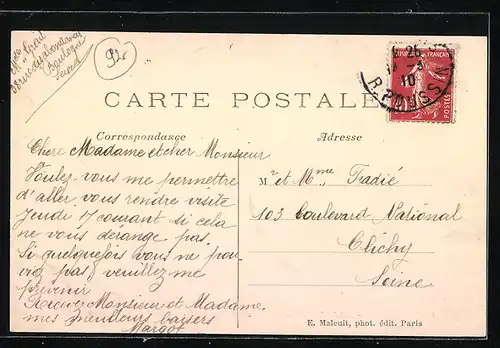 92
CARTE POSTALE
Correspondance
Adresse
FRANÇAISE
POSTES
10
Chere Madame et cher Monsieur
Voulez-vous me permettre
d'aller vous rendre visite
Jeudi 17 courant si cela
ne vous dérange pas.
Si quelquefois vous ne pou
viez pas veuillez me
prevenir
Recevez Monsieur et Madame
mes meilleurs baisers
Margot
Mr et Mme Tradié
103 boulevard National
Clichy
Seine
E. Malcuit, phot. édit. Paris